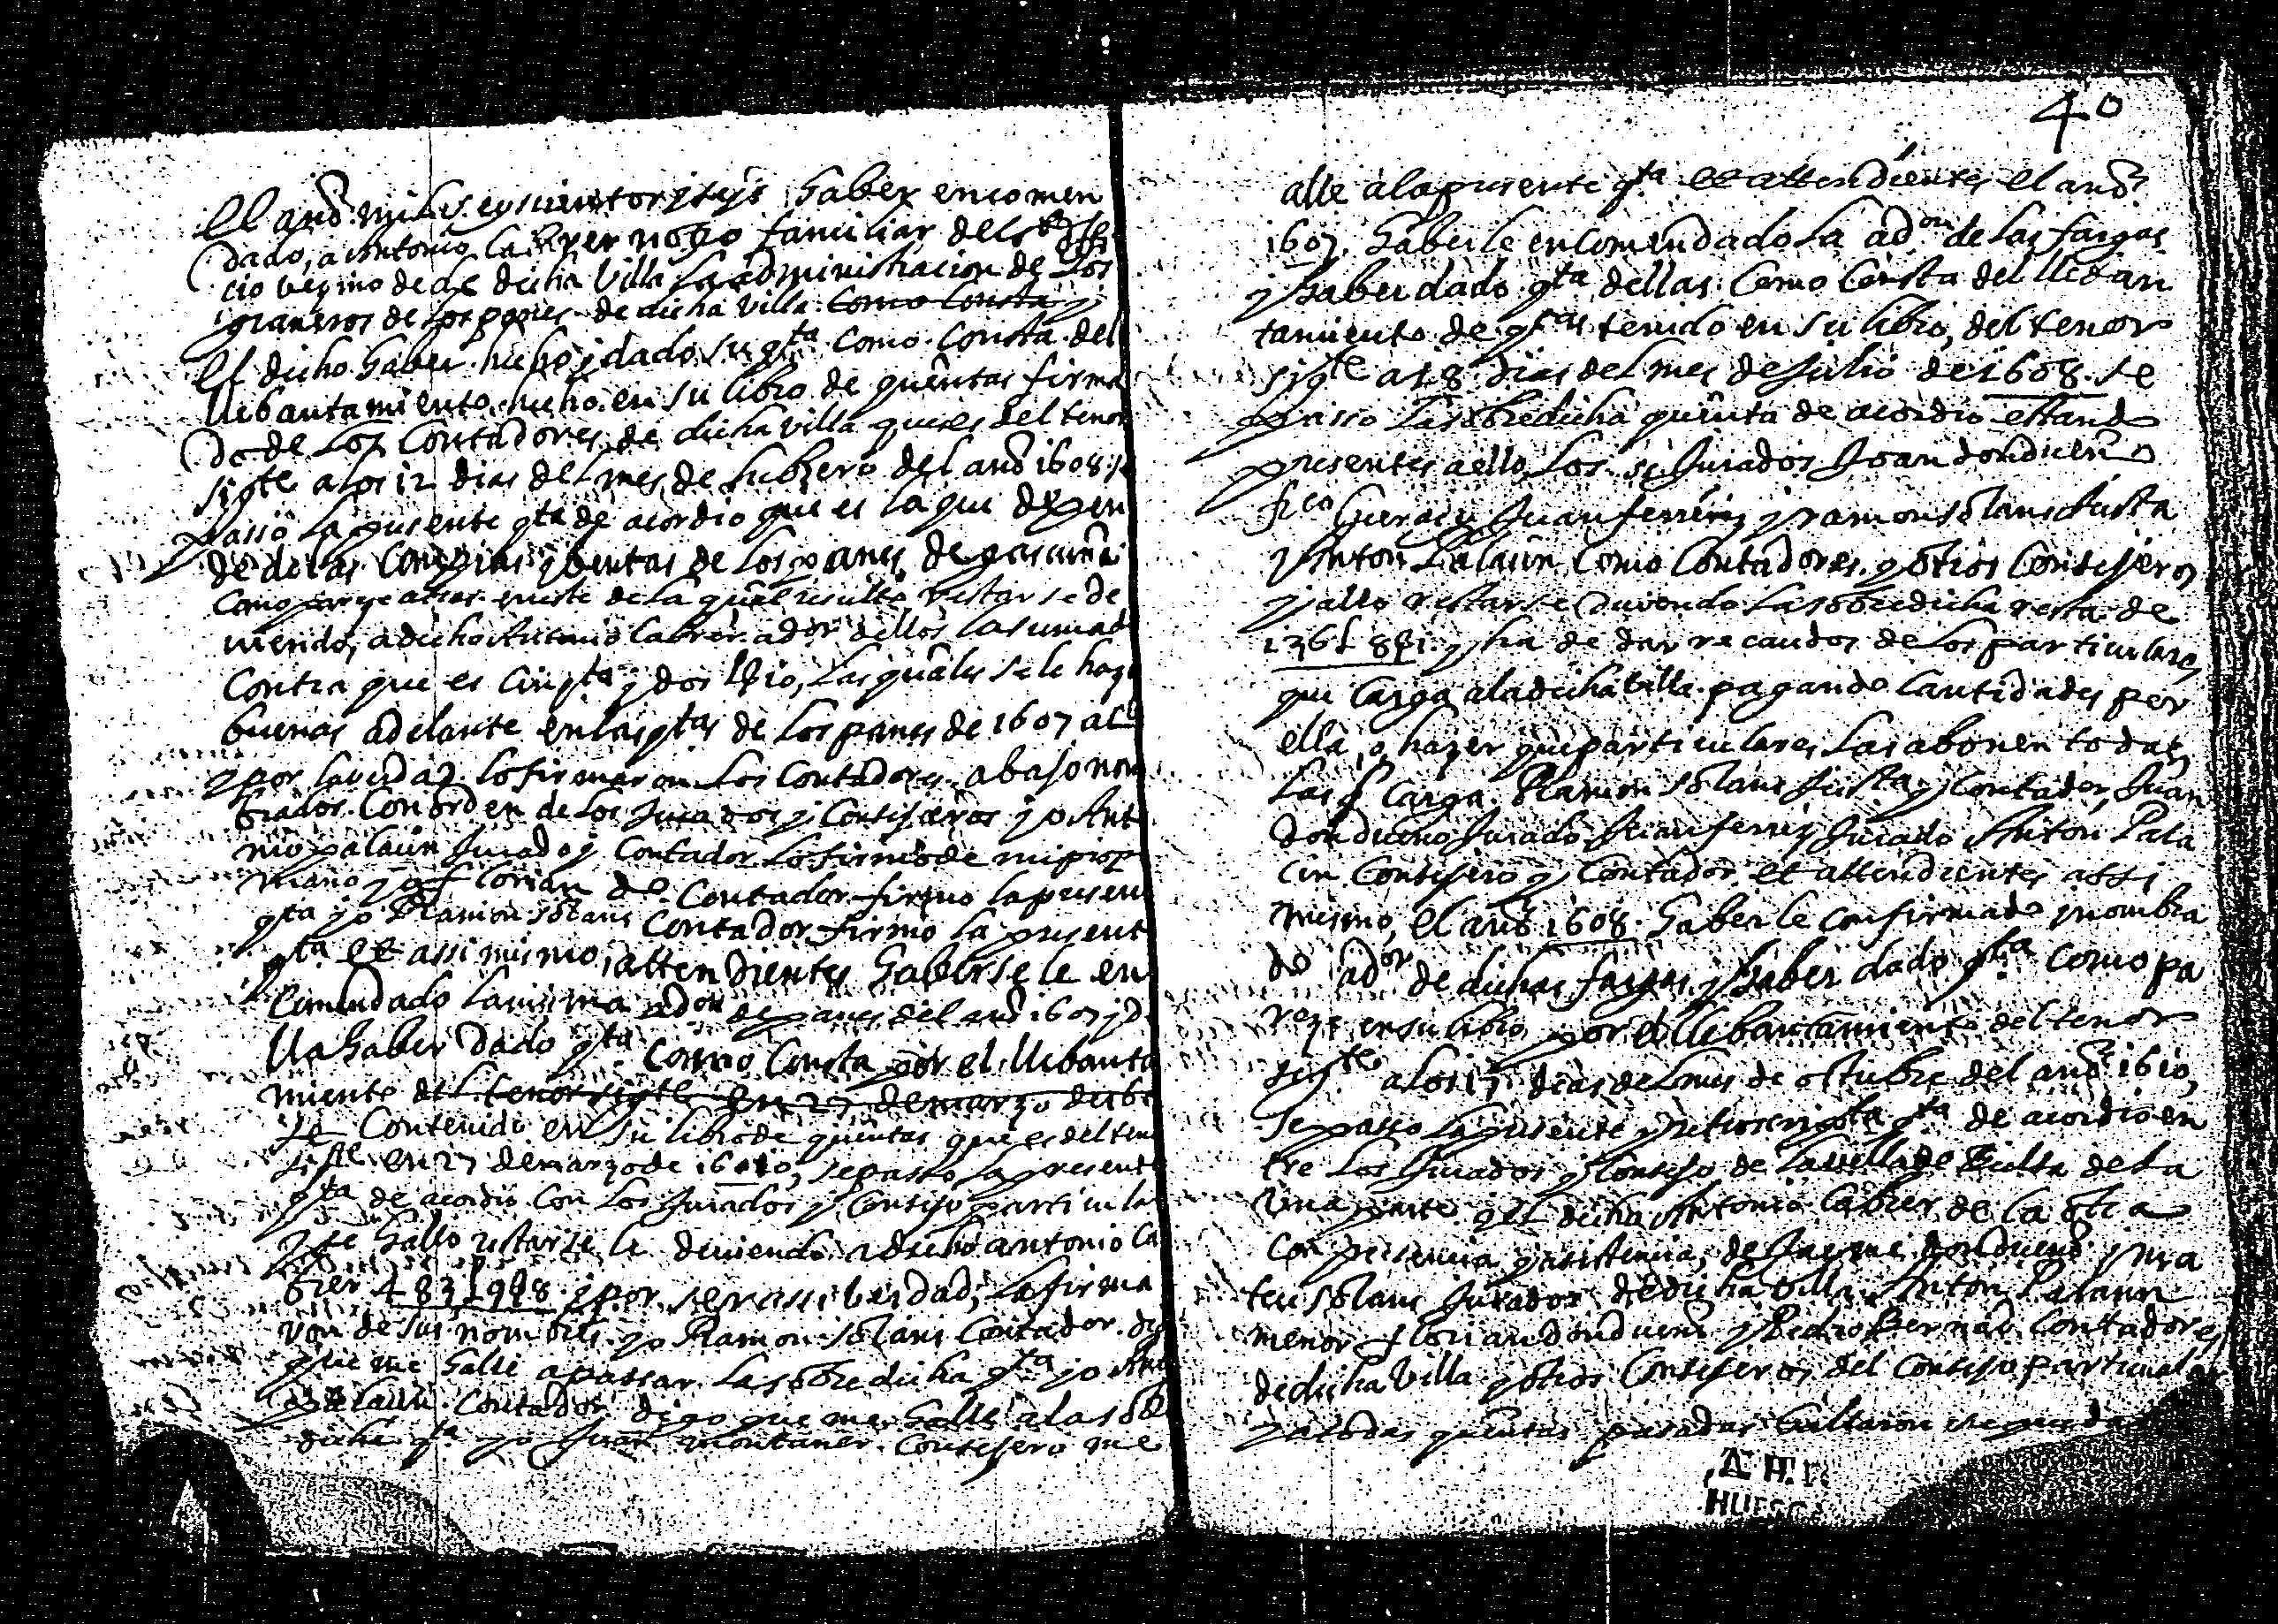 el año mil y seyscientos y seys haber encomen
dado, a Antonio Cabrer nottº familiar del s.to offi
cio vezino de de dicha villa la administracion de los
graneros de los panes de dicha villa como consta y
el dicho haber hecho y dado su qta como consta del
llebantamiento hecho en su libro de quentas firma
do de los contadores de dicha villa que es del tenor
sigte a los 12 dias del mes de hebrero del año 1608 se
passo la presente qta de acordio que es la que depen
de de las compras y bentas de los panes de
como parece en este de la qual resulta restarse de
uiendo, a dicho Antonio Cabrer ador dellos la suma de
contra que es cinqta y dos las quales se le haze
buenas adelante en las qtas de los panes de 1607
y por la verdad lo firmaron los contadores abajo nom
brados con orden de los Jurados y Consejeros yo Anto
nio palacin Jurado y contador lo firmo de mi propia
mano yo florian do contador firmo la presen
qta yo Ramon solans contador firmo la present
qta et assi mismo attendientes haberse le en
comendado la misma adon de panes del año 1607 y de
lla haber dado qta como consta por el llebanta
miento del tenor sigte en 27 de marzo de
se contenido en su libro de quentas que es del ten
sigte en 27 de marzo de 1610, se passo la presente
qta de acordio con los Jurados y Consejo particula
y se hallo restar se le deuiendo a dicho antonio Ca
brer y por ser assi berdad, lo firma
ron de sus nombres yo Ramon solans contador digo
que me halle a passar la sobredicha qta yo Anto
palacin contador digo que me halle a la sobre
dicha qta yo Juan montaner consejero me
40
alle a la presente qta et attendientes el año
1607 haberle encomendado la adon de las fargas
y haber dado qta dellas como consta del lleban
tamiento de qtas tenido en su libro, del tenor
sigte a 18 dias del mes de Julio de 1608 se
passo la sobredicha quenta de acordio estando
presentes a ello los ss Jurados Joan dondueño
Juan ferrer y ramon solans Justa
Anton Palacin como contadores y otros Consejeros
y allo restarse deuiendo la sobredicha resta de
y ha de dar recaudos de los particulares
que carga a la dicha villa pagando cantidades por
ella, o hazer que particulares las abonen todas
las q carga Ramon solans Justa y contador, Juan
dondueño Jurado Juan ferrer Jurado Anton Pala
cin Consejero y contador et attendientes assi
mismo, el año 1608 haberle confirmado y nombra
do ador de dichas fargas y haber dado qta como pa
reze en su libro por el llebantamiento del tenor
sigte a los 17 dias del mes de octubre del año 1610,
se passo la presente y retroscripta qta de acordio en
tre los Jurados y Consejo de la villa de Bielsa de la
una parte y el dicho Antonio Cabrer de la otra
con presencia y asistencia, de Jayme dondueño y ma
teu solans Jurados de dicha villa Anton Palacin
menor florian dondueño y Pedro Bernad contadores
de dicha villa y otros Consejeros del Consejo particular
y a todas quentas pasadas
A.H.P.
HUESCA